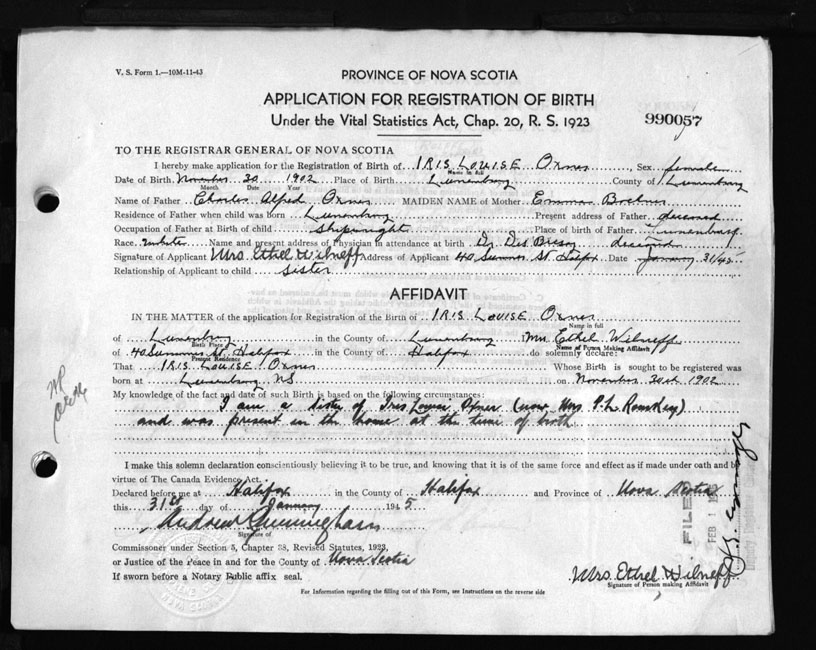 V. S. Form 1.—10M-11-43
PROVINCE OF NOVA SCOTIA
APPLICATION FOR REGISTRATION OF BIRTH
Under the Vital Statistics Act, Chap. 20, R. S. 1923
990057
TO THE REGISTRAR GENERAL OF NOVA SCOTIA
I hereby make application for the Registration of Birth of IRIS LOUISE Oxner, Sex female
Name in full
Date of Birth November 30 1902 Place of Birth Lunenburg County of Lunenburg
Month Date Year
Name of Father Charles Alfred Oxner MAIDEN NAME of Mother Emma
Residence of Father when child was born Lunenburg Present address of Father deceased
Occupation of Father at Birth Shipwright Place of birth of Father Lunenburg
Race Name and present address of Physician in attendance at birth Dr. Des Brisay deceased
Signature of Applicant Mrs. Ethel Wilneff Address of Applicant 40 Summer St. Halifax Date January 31/45
Relationship of Applicant to child sister
AFFIDAVIT
IN THE MATTER of the application for Registration of the Birth of IRIS LOUISE Oxner
Name in full
of Lunenburg in the County of Lunenburg I, Mrs Ethel Wilneff
Birth Place Name of Person Making Affidavit
of 40 Summer St. Halifax in the County of Halifax do solemnly declare:
Present Residence
That IRIS LOUISE Oxner Whose Birth is sought to be registered was
born at Lunenburg NS on November 30th 1902
My knowledge of the fact and date of such Birth is based on the following circumstances:
I am a sister of Iris Louise Oxner (now Mrs. P. L. Romkey)
and was present in the home at the time of birth
I make this solemn declaration conscientiously believing it to be true, and knowing that it is of the same force and effect as if made under oath and by
virtue of The Canada Evidence Act.
Declared before me at Halifax in the County of Halifax and Province of Nova Scotia
this 31st day of January 1945
Andrew Cunningham
Signature of
Commissioner under Section 5, Chapter 38, Revised Statutes, 1923,
or Justice of the Peace in and for the County of Nova Scotia
If sworn before a Notary Public affix seal.
Mrs. Ethel Wilneff
Signature of Person making Affidavit
For Information regarding the filling out of this Form, see Instructions on the reverse side
FILED
FEB 1